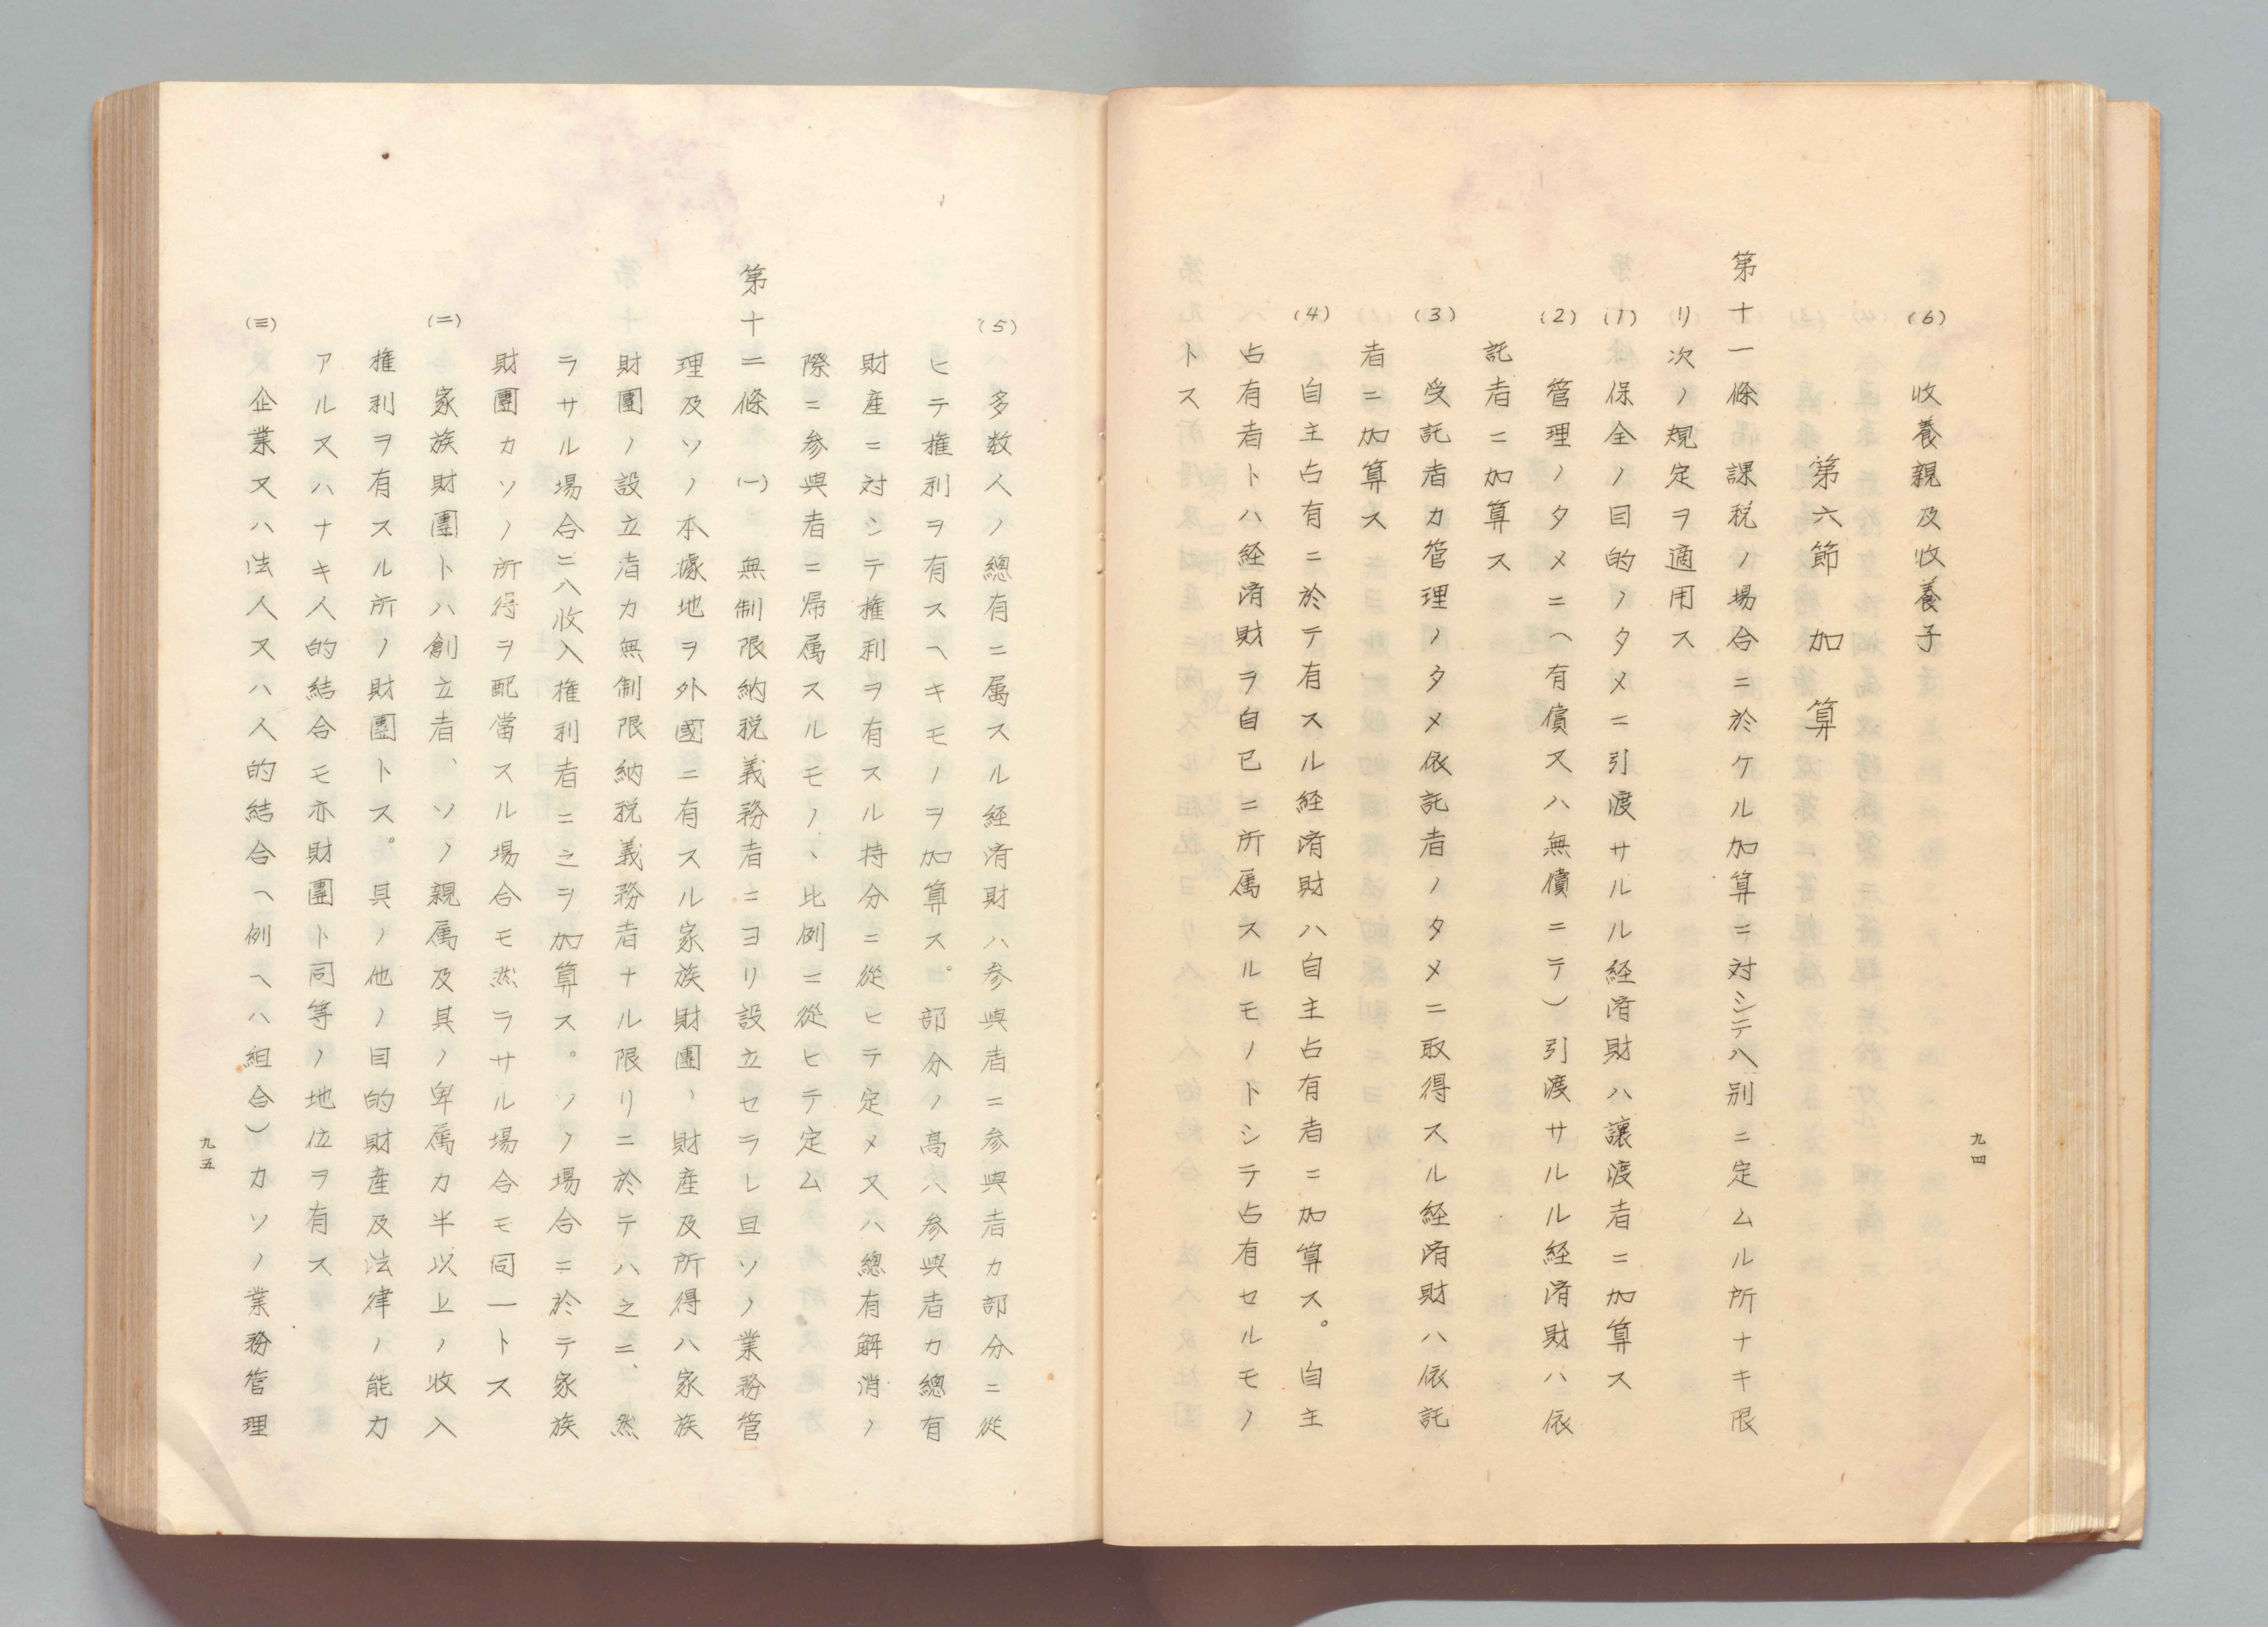 (6) 收養親及收養子
第六節 加算
第十一條 課税ノ場合ニ於ケル加算ニ対シテハ別ニ定ムル所ナキ限
リ次ノ規定ヲ適用ス
(1) 保全ノ目的ノタメニ引渡サルル経済財ハ讓渡者ニ加算ス
(2) 管理ノタメニ(有償又ハ無償ニテ)引渡サルル経済財ハ依
託者ニ加算ス
(3) 受託者カ管理ノタメ依託者ノタメニ取得スル経済財ハ依託
者ニ加算ス
(4) 自主占有ニ於テ有スル経済財ハ自主占有者ニ加算ス。自主
占有者トハ経済財ヲ自己ニ所属スルモノトシテ占有セルモノ
トス
九四
(5) 多数人ノ總有ニ属スル経済財ハ参與者ニ参與者カ部分ニ従
ヒテ権利ヲ有スヘキモノヲ加算ス。部分ノ高ハ参與者カ總有
財産ニ対シテ権利ヲ有スル持分ニ從ヒテ定メ又ハ總有解消ノ
際ニ参與者ニ帰属スルモノヽ比例ニ從ヒテ定ム
第十二條 (一) 無制限納税義務者ニヨリ設立セラレ且ソノ業務管
理及ソノ本據地ヲ外國ニ有スル家族財團ヽ財産及所得ハ家族
財團ノ設立者カ無制限納税義務者ナル限リニ於テハ之ニ、然
ラサル場合ニハ收入権利者ニ之ヲ加算ス。ソノ場合ニ於テ家族
財團カソノ所得ヲ配當スル場合モ然ラサル場合モ同一トス
(二) 家族財團トハ創立者、ソノ親属及其ノ卑属カ半以上ノ收入
権利ヲ有スル所ノ財團トス。其ノ他ノ目的財産及法律ノ能力
アル又ハナキ人的結合モ亦財團ト同等ノ地位ヲ有ス
(三) 企業又ハ法人又ハ人的結合(例ヘハ組合)カソノ業務管理
九五